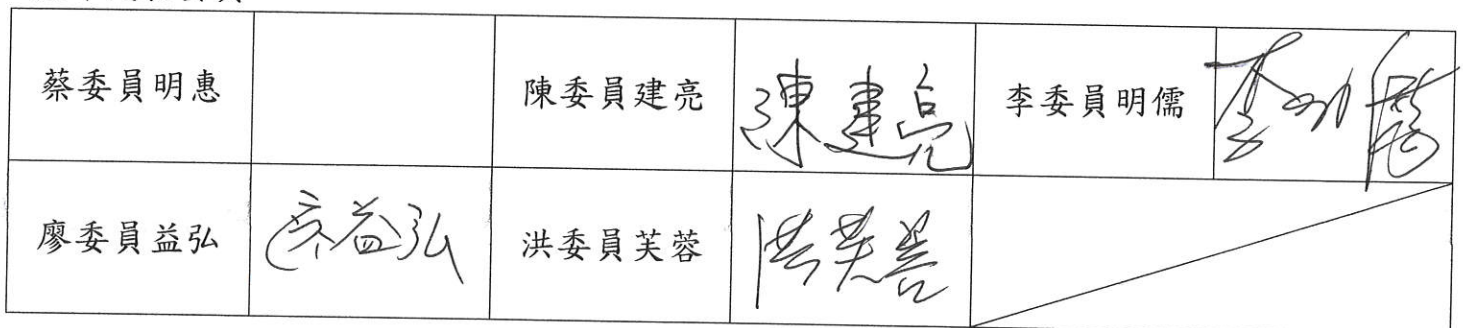 蔡委員明惠 陳委員建亮 陳建亮 李委員明儒 李明儒
廖委員益弘 廖益弘 洪委員芙蓉 洪芙蓉